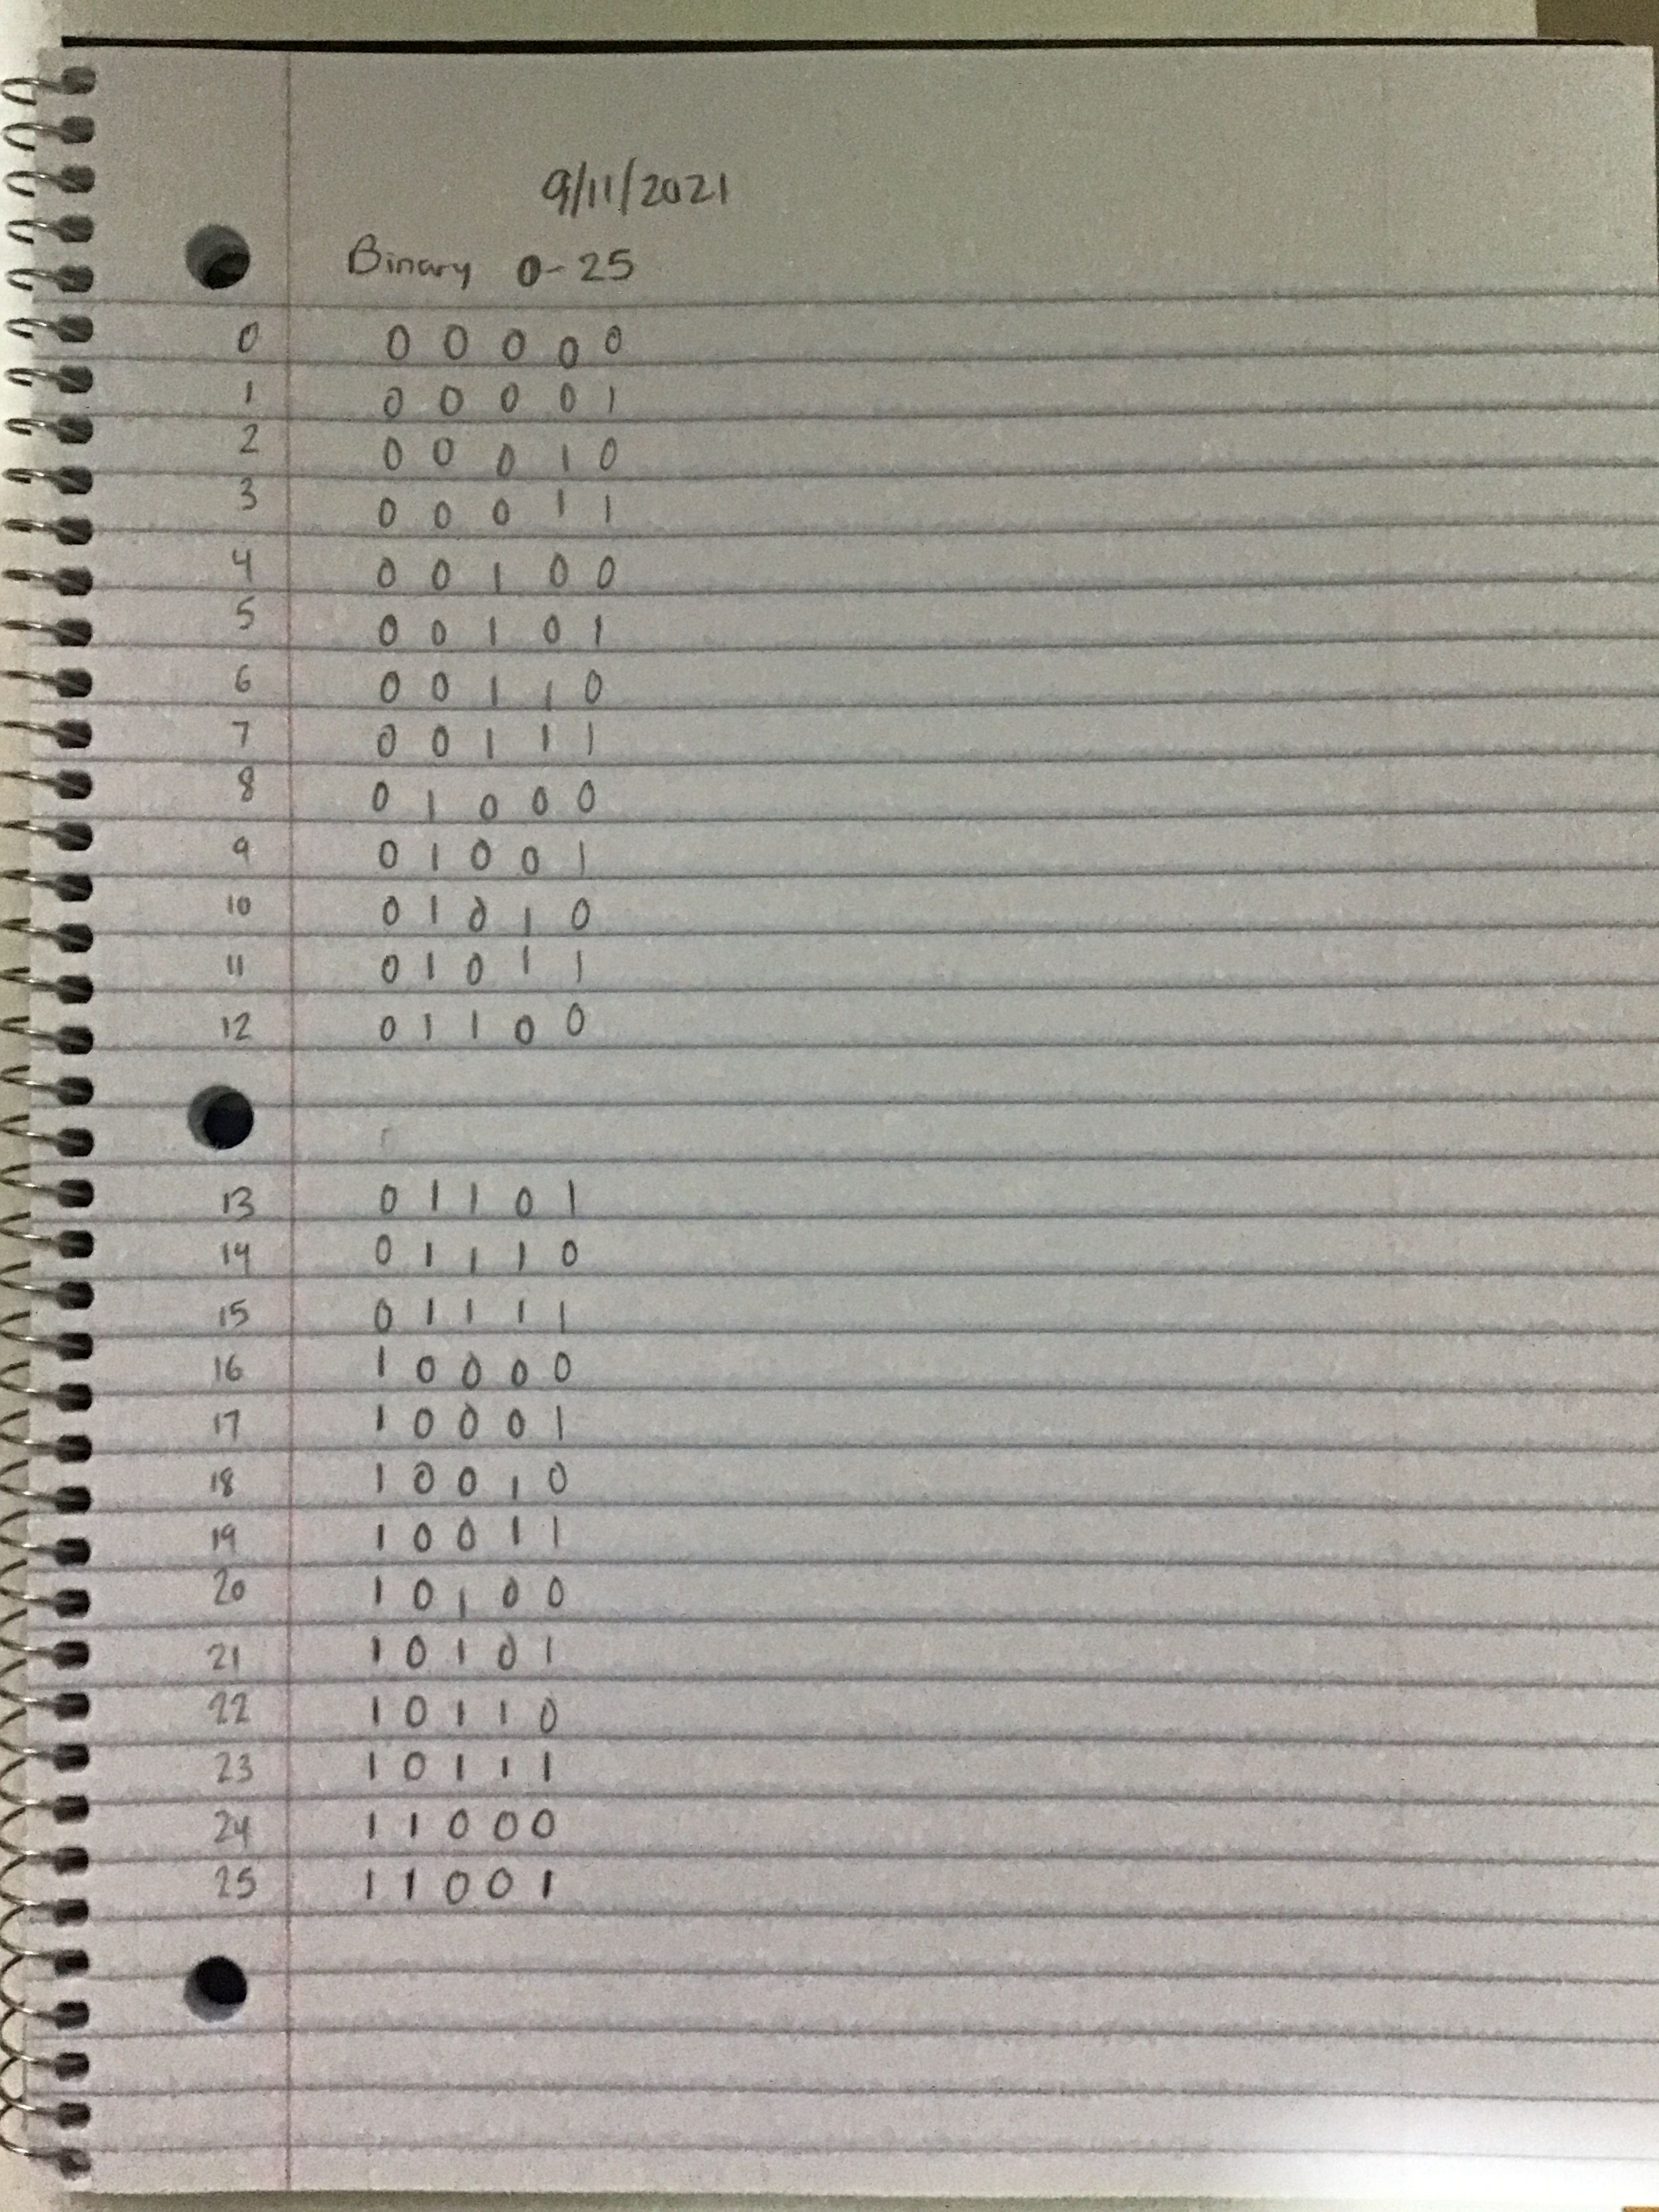 9/11/2021
Binary 0-25
0 0 0 0 0 0
1 0 0 0 0 1
2 0 0 0 1 0
3 0 0 0 1 1
4 0 0 1 0 0
5 0 0 1 0 1
6 0 0 1 1 0
7 0 0 1 1 1
8 0 1 0 0 0
9 0 1 0 0 1
10 0 1 0 1 0
11 0 1 0 1 1
12 0 1 1 0 0
13 0 1 1 0 1
14 0 1 1 1 0
15 0 1 1 1 1
16 1 0 0 0 0
17 1 0 0 0 1
18 1 0 0 1 0
19 1 0 0 1 1
20 1 0 1 0 0
21 1 0 1 0 1
22 1 0 1 1 0
23 1 0 1 1 1
24 1 1 0 0 0
25 1 1 0 0 1